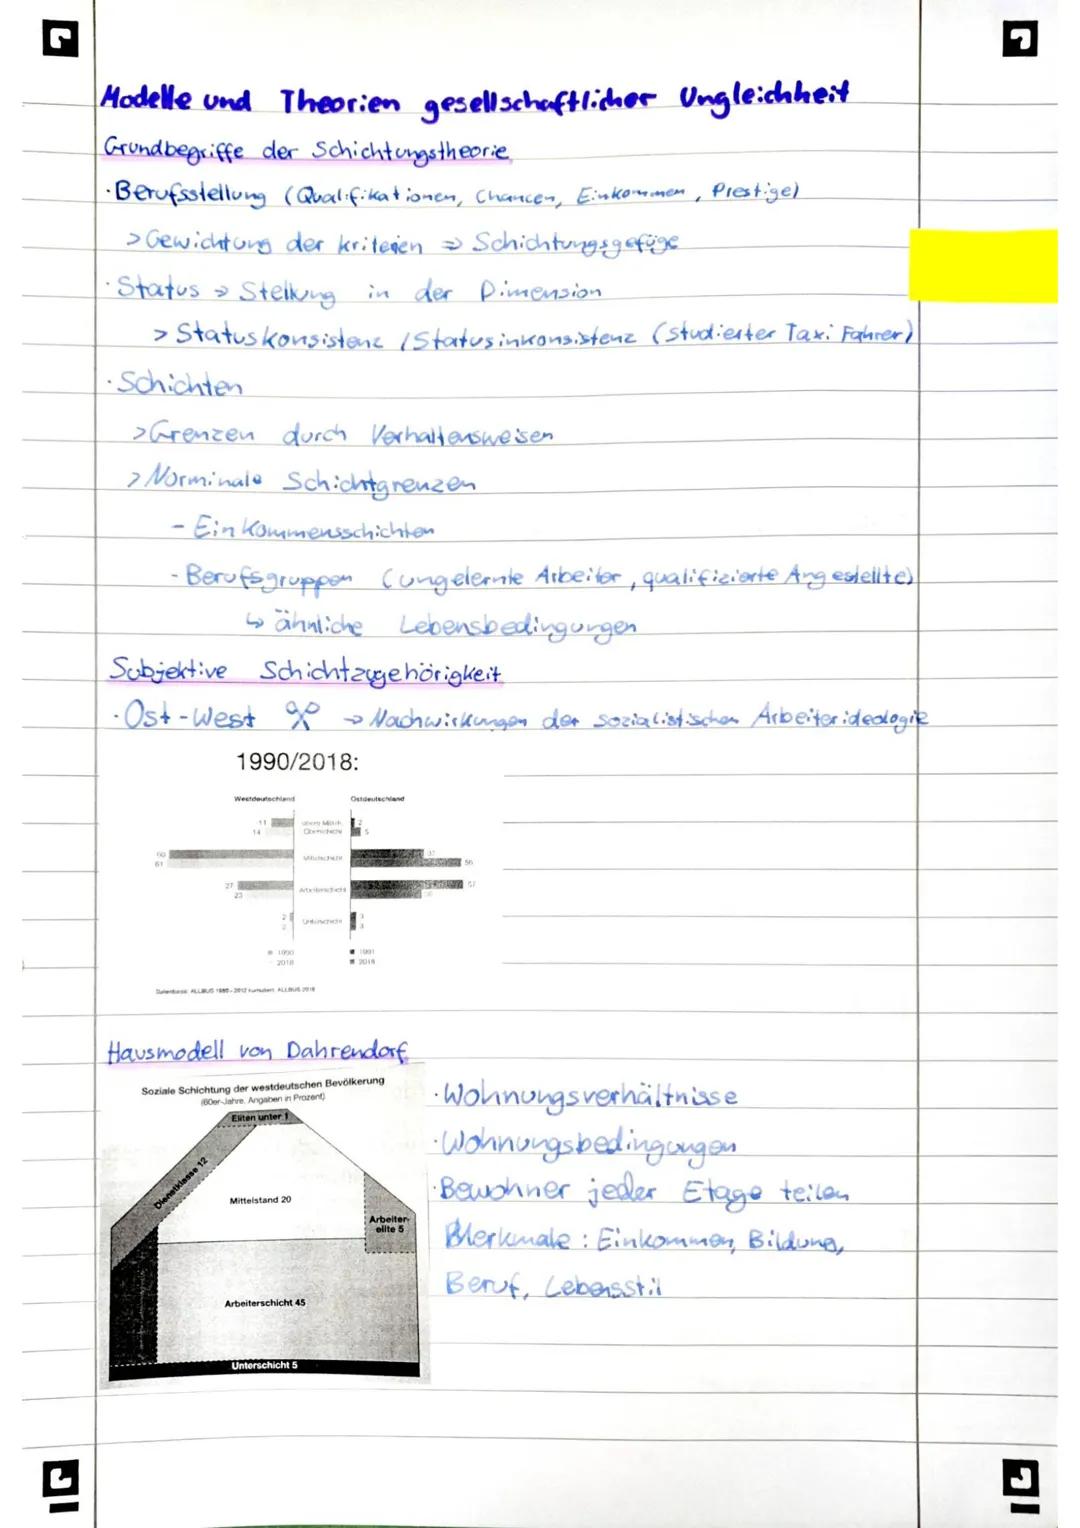 Modelle und Theorien gesellschaftlicher Ungleichheit
Grundbegriffe der Schichtungstheorie
·Berufsstellung (Qualifikationen, Chancen, Einkommen, Prestige)
>Gewichtung der Kriterien ⇒ Schichtungsgefüge
·Status → Stellung in der Dimension
> Statuskonsistenz /Statusinkonsistenz (studierter Taxi Fahrer)
·Schichten
>Grenzen durch Verhaltensweisen
> Norminale Schichtgrenzen
- Einkommensschichten
- Berufsgruppen (ungelernte Arbeiter, qualifizierte Angestellte)
↳ ähnliche Lebensbedingungen
Subjektive Schichtzugehörigkeit
·Ost-West → Nachwirkungen der sozialistischen Arbeiterideologie
1990/2018:
Westdeutschland Ostdeutschland
11 obere Mittel- 2
14 Oberschicht 5
60 Mittelschicht 37
61 56
27 Arbeiterschicht 57
23
2 Unterschicht 3
2 3
1990 1991
2018 2018
Datenbasis: ALLBUS 1980-2012 kumuliert, ALLBUS 2018
Hausmodell von Dahrendorf
Soziale Schichtung der westdeutschen Bevölkerung
(60er-Jahre, Angaben in Prozent)
Eliten unter 1
Dienstklasse 12
Mittelstand 20
Arbeiter-
elite 5
Arbeiterschicht 45
Unterschicht 5
·Wohnungsverhältnisse
·Wohnungsbedingungen
·Bewohner jeder Etage teilen
Merkmale: Einkommen, Bildung,
Beruf, Lebensstil